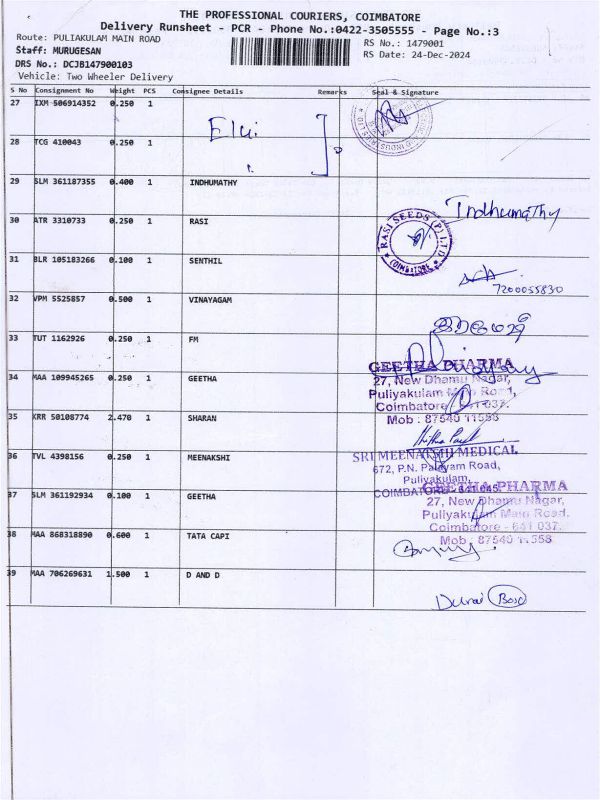 THE PROFESSIONAL COURIERS, COIMBATORE
Delivery Runsheet - PCR - Phone No.:0422-3505555 - Page No.:3
Route: PULIAKULAM MAIN ROAD
RS No.: 1479001
Staff: MURUGESAN
RS Date: 24-Dec-2024
DRS No.: DCJB147900103
Vehicle: Two Wheeler Delivery
S No Consignment No Weight PCS Consignee Details Remarks Seal & Signature
27 IXM 506914352 0.250 1
28 TCG 410043 0.250 1
29 SLM 361187355 0.400 1 INDHUMATHY
Indhumathy
30 ATR 3310733 0.250 1 RASI
RASI SEEDS (P) LTD
COIMBATORE
31 BLR 105183266 0.100 1 SENTHIL
7200055830
32 VPM 5525857 0.500 1 VINAYAGAM
33 TUT 1162926 0.250 1 FM
34 MAA 109945265 0.250 1 GEETHA
GEETHA PHARMA
27, New Dhamu Nagar,
Puliyakulam Main Road,
Coimbatore - 641 037.
Mob : 87540 11558
35 KRR 50108774 2.470 1 SHARAN
36 TVL 4398156 0.250 1 MEENAKSHI
SRI MEENAKSHI MEDICAL
672, P.N. Palayam Road,
Puliyakulam,
COIMBATORE - 641045.
37 SLM 361192934 0.100 1 GEETHA
GEETHA PHARMA
27, New Dhamu Nagar,
Puliyakulam Main Road.
Coimbatore - 641 037.
Mob : 87540 11558
38 MAA 868318890 0.600 1 TATA CAPI
39 MAA 706269631 1.500 1 D AND D